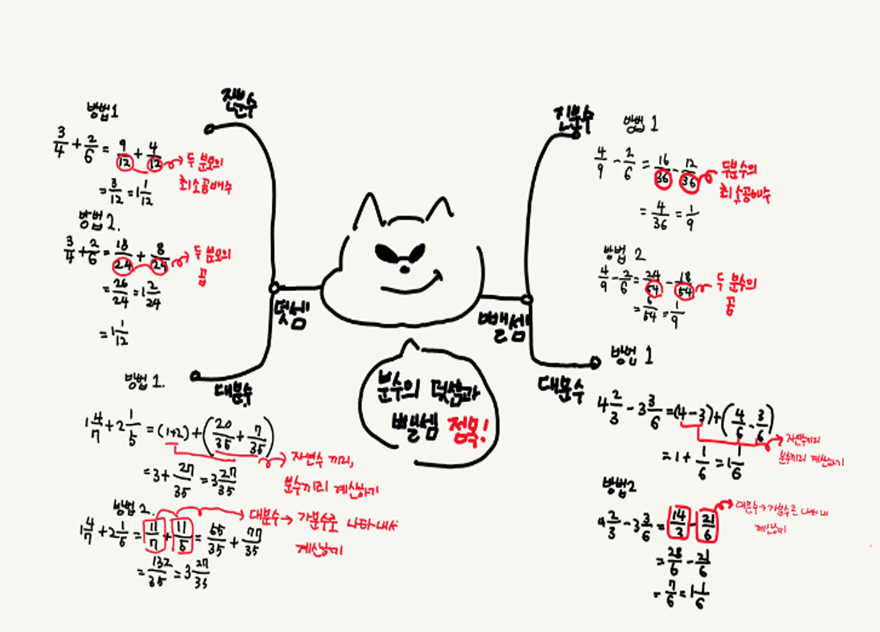 진분수
방법1
3/4 + 2/6 = 9/12 + 4/12 → 두 분모의
최소공배수
= 3/12 = 1 1/12
방법2.
3/4 + 2/6 = 18/24 + 8/24 → 두 분모의
곱
= 26/24 = 1 2/24
= 1 1/12
덧셈
대분수
방법 1.
1 4/7 + 2 1/5 = (1+2) + (20/35 + 7/35)
→ 자연수 끼리,
분수끼리 계산하기
= 3 + 27/35 = 3 27/35
방법 2.
1 4/7 + 2 1/6 = 11/7 + 11/5 = 55/35 + 77/35
대분수 → 가분수로 나타내서
계산하기
= 132/35 = 3 27/35
분수의 덧셈과
뺄셈 정복!
뺄셈
진분수
방법 1
4/9 - 2/6 = 16/36 - 12/36 → 두분수의
최소공배수
= 4/36 = 1/9
방법 2
4/9 - 2/6 = 24/54 - 18/54 → 두 분수의
곱
= 6/54 = 1/9
대분수
방법 1
4 2/3 - 3 3/6 = (4-3) + (4/6 - 3/6)
자연수끼리
분수끼리 계산하기
= 1 + 1/6 = 1 1/6
방법2
4 2/3 - 3 3/6 = 14/3 - 21/6
대분수→가분수로 나타내
계산하기
= 28/6 - 21/6
= 7/6 = 1 1/6